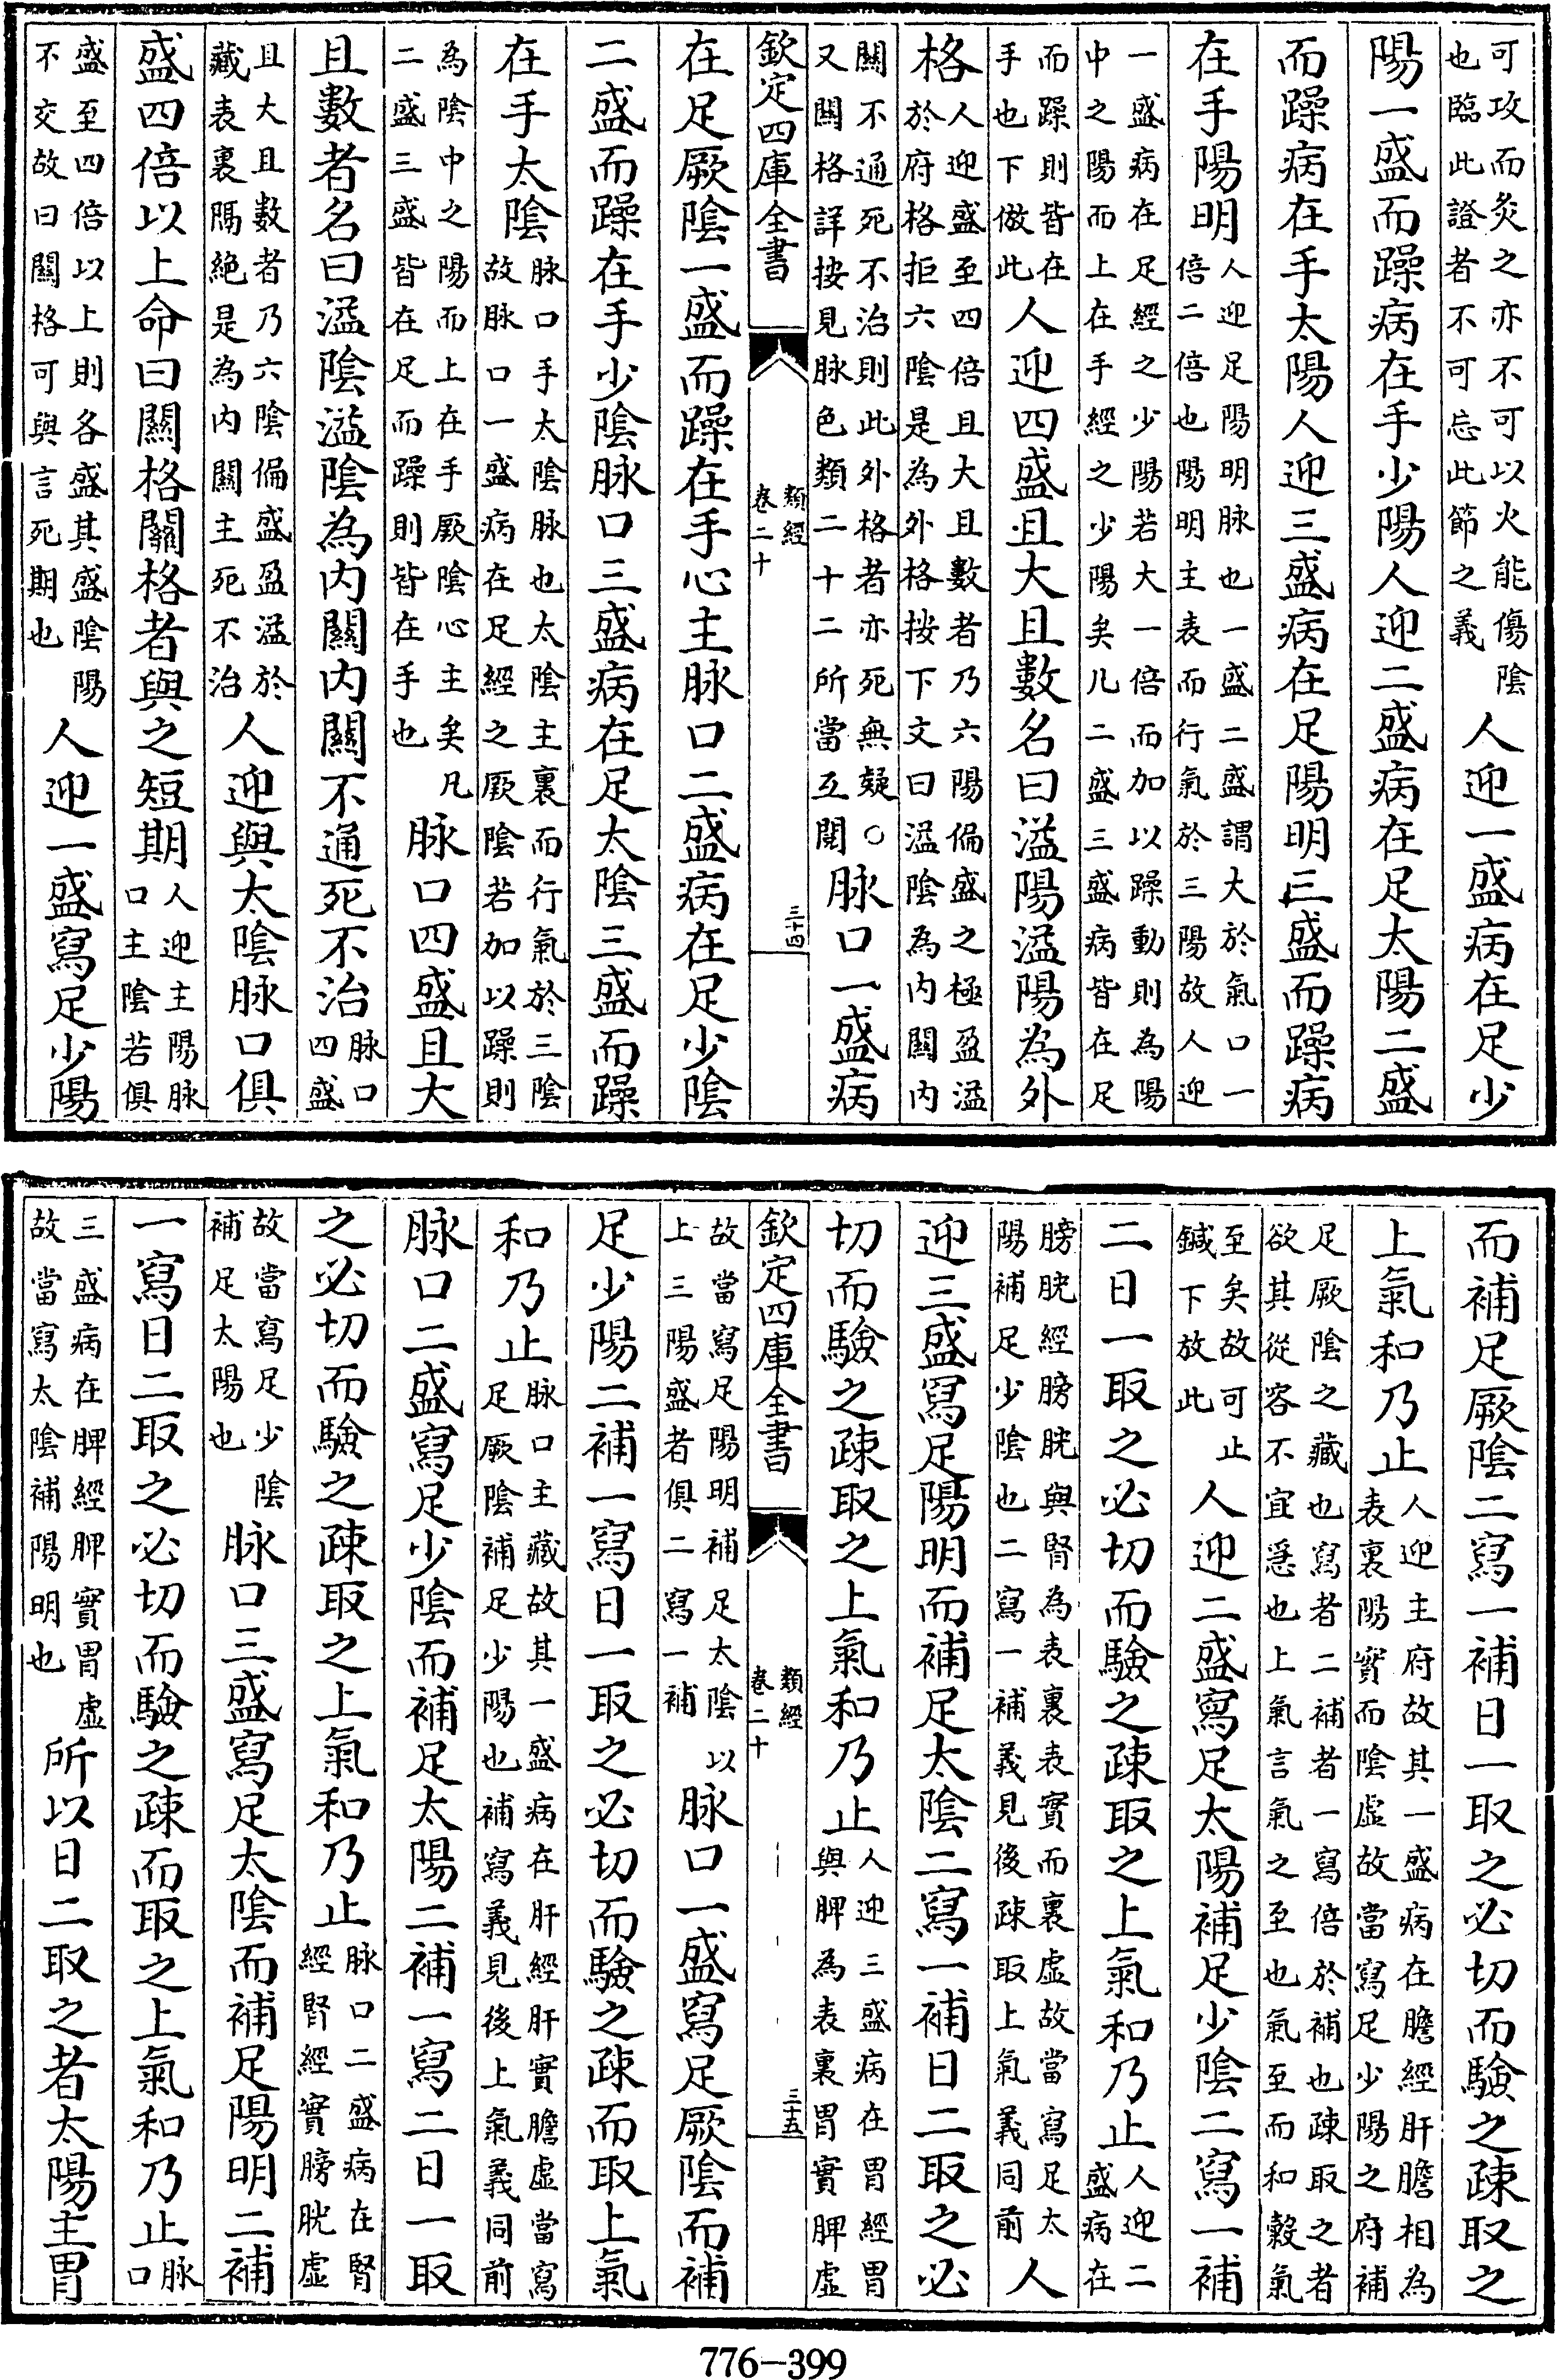 可攻而灸之亦不可以火能傷陰也臨此證者不可忘此節之義人迎一盛病在足少
陽一盛而躁病在手少陽人迎二盛病在足太陽二盛
而躁病在手太陽人迎三盛病在足陽明三盛而躁病
在手陽明人迎足陽明脉也一盛二盛謂大於氣口一倍二倍也陽明主表而行氣於三陽故人迎
一盛病在足經之少陽若大一倍而加以躁動則為陽中之陽而上在手經之少陽矣凡二盛三盛病皆在足
而躁則皆在手也下倣此人迎四盛且大且數名曰溢陽溢陽為外
格人迎盛至四倍且大且數者乃六陽偏盛之極盈溢於府格拒六陰是為外格按下文曰溢陰為內關內
關不通死不治則此外格者亦死無疑○又關格詳按見脉色類二十二所當互閱脉口一盛病
欽定四庫全書 類經 卷二十 三十四
在足厥陰一盛而躁在手心主脉口二盛病在足少陰
二盛而躁在手少陰脉口三盛病在足太陰三盛而躁
在手太陰脉口手太陰脉也太陰主裏而行氣於三陰故脉口一盛病在足經之厥陰若加以躁則
為陰中之陽而上在手厥陰心主矣凡二盛三盛皆在足而躁則皆在手也脉口四盛且大
且數者名曰溢陰溢陰為內關內關不通死不治脉口四盛
且大且數者乃六陰偏盛盈溢於藏表裏隔絶是為內關主死不治人迎與太陰脉口俱
盛四倍以上命曰關格關格者與之短期人迎主陽脉口主陰若俱
盛至四倍以上則各盛其盛陰陽不交故曰關格可與言死期也人迎一盛寫足少陽
而補足厥陰二寫一補日一取之必切而驗之疎取之
上氣和乃止人迎主府故其一盛病在膽經肝膽相為表裏陽實而陰虛故當寫足少陽之府補
足厥陰之藏也寫者二補者一寫倍於補也疎取之者欲其從容不宜急也上氣言氣之至也氣至而和穀氣
至矣故可止鍼下放此人迎二盛寫足太陽補足少陰二寫一補
二日一取之必切而驗之疎取之上氣和乃止人迎二盛病在
膀胱經膀胱與腎為表裏表實而裏虛故當寫足太陽補足少陰也二寫一補義見後疎取上氣義同前人
迎三盛寫足陽明而補足太陰二寫一補日二取之必
切而驗之疎取之上氣和乃止人迎三盛病在胃經胃與脾為表裏胃實脾虛
欽定四庫全書 類經 卷二十 三十五
故當寫足陽明補足太陰以上三陽盛者俱二寫一補脉口一盛寫足厥陰而補
足少陽二補一寫日一取之必切而驗之疎而取上氣
和乃止脉口主藏故其一盛病在肝經肝實膽虛當寫足厥陰補足少陽也補寫義見後上氣義同前
脉口二盛寫足少陰而補足太陽二補一寫二日一取
之必切而驗之疎取之上氣和乃止脉口二盛病在腎經腎經實膀胱虛
故當寫足少陰補足太陽也脉口三盛寫足太陰而補足陽明二補
一寫日二取之必切而驗之疎而取之上氣和乃止脉口
三盛病在脾經脾實胃虛故當寫太陰補陽明也所以日二取之者太陽主胃
776-399